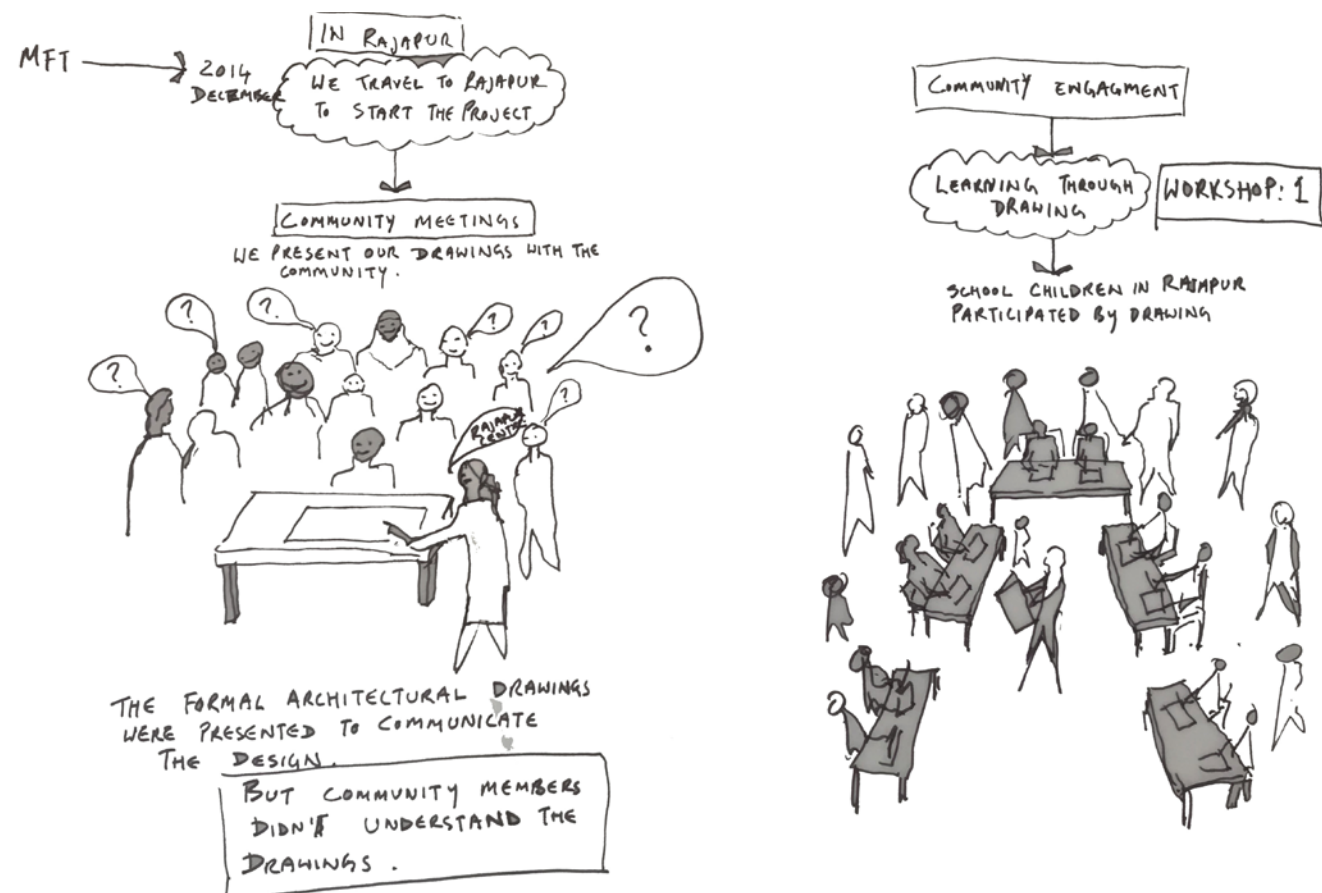 MFT
2014
DECEMBER
IN RAJAPUR
WE TRAVEL TO RAJAPUR
TO START THE PROJECT
COMMUNITY MEETINGS
WE PRESENT OUR DRAWINGS WITH THE
COMMUNITY.
?
?
?
?
?
?
?
RAJAPUR
CENTRE
THE FORMAL ARCHITECTURAL DRAWINGS
WERE PRESENTED TO COMMUNICATE
THE DESIGN.
BUT COMMUNITY MEMBERS
DIDN'T UNDERSTAND THE
DRAWINGS.
COMMUNITY ENGAGMENT
LEARNING THROUGH
DRAWING
WORKSHOP: 1
SCHOOL CHILDREN IN RAJAPUR
PARTICIPATED BY DRAWING